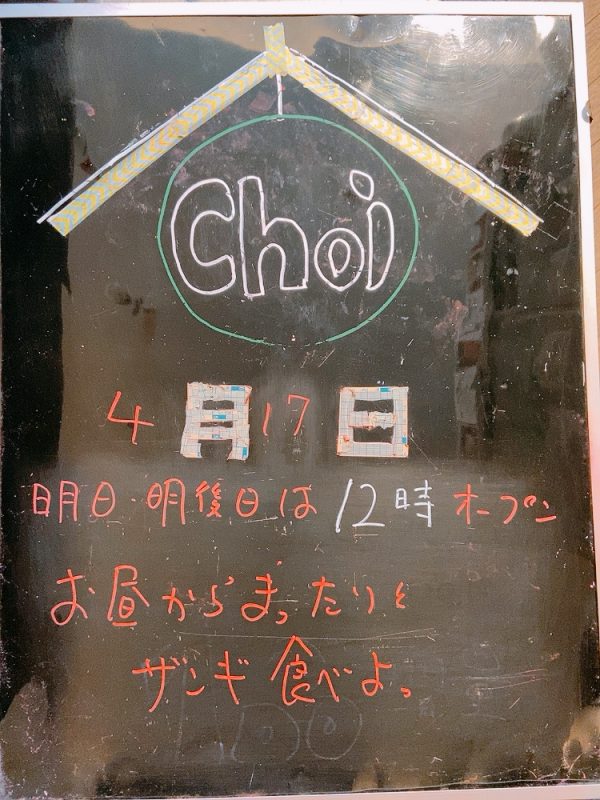 Choi
4月17日
明日・明後日は12時オープン
お昼からまったりと
ザンギ食べよっ